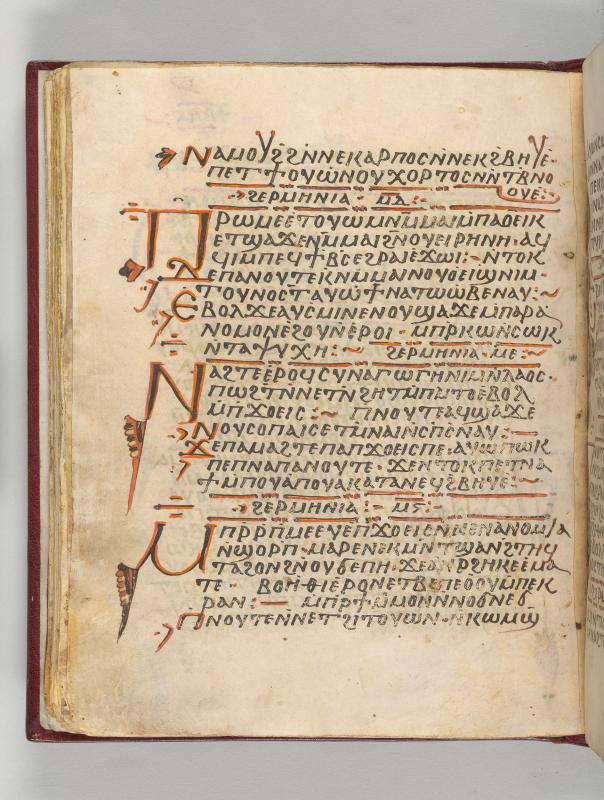 ⲛⲁⲙⲟⲩϩϩⲛⲛⲉⲕⲁⲣⲡⲟⲥⲛⲛⲉⲕϩⲃⲏⲩⲉ·
ⲡⲉⲧϯⲟⲩⲱⲛⲟⲩⲭⲟⲣⲧⲟⲥⲛⲛⲧⲃⲛⲟ
ⲟⲩⲉ:
ϩⲉⲣⲙⲏⲛⲓⲁ ⲙⲇ:
ⲡⲣⲱⲙⲉⲉⲧⲟⲩⲱⲙⲛⲙⲙⲁⲓⲙⲡⲁⲟⲉⲓⲕ
ⲉⲧϣⲁϫⲉⲛⲙⲙⲁⲓϩⲛⲟⲩⲉⲓⲣⲏⲛⲏ·ⲁϥ
ϥⲓⲙⲡⲉϥϯⲃⲥⲉϩⲣⲁⲓⲉϫⲱⲓ:–ⲛⲧⲟⲕ
ⲇⲉⲡⲁⲛⲟⲩⲧⲉⲕⲛⲙⲙⲁⲓⲛⲟⲩⲟⲉⲓϣⲛⲓⲙ·
ⲧⲟⲩⲛⲟⲥⲧⲁⲩⲱϯⲛⲁⲧⲱⲱⲃⲉⲛⲁⲩ:~
ⲉⲃⲟⲗϫⲉⲁⲩⲥⲙⲓⲛⲉⲛⲟⲩϣⲁϫⲉⲙⲡⲁⲣⲁ
ⲛⲟⲙⲟⲛⲉϩⲟⲩⲛⲉⲣⲟⲓ· ⲙⲡⲣⲕⲱⲛⲥⲱⲕ
ⲛⲧⲁⲯⲩⲭⲏ:~ ϩⲉⲣⲙⲏⲛⲓⲁ·ⲙⲉ:~
ⲛⲁϩⲧⲉⲉⲣⲟϥⲥⲩⲛⲁⲅⲱⲅⲏⲛⲓⲙⲛⲗⲁⲟⲥ·
ⲡⲱϩⲧⲛⲛⲉⲧⲛϩⲏⲧⲙⲡⲙⲧⲟⲉⲃⲟⲗ
ⲙⲡϫⲟⲉⲓⲥ:~ ⲡⲛⲟⲩⲧⲉⲁϥϣⲁϫⲉ
ⲛⲟⲩⲥⲟⲡⲁⲓⲥⲉⲧⲙⲛⲁⲓⲛⲥⲡⲥⲛⲁⲩ:–
ϫⲉⲡⲁⲙⲁϩⲧⲉⲡⲁⲡϫⲟⲉⲓⲥⲡⲉ·ⲁⲩⲱⲡⲱⲕ
ⲡⲉⲡⲛⲁⲡⲁⲛⲟⲩⲧⲉ·ϫⲉⲛⲧⲟⲕⲡⲉⲧⲛⲁ
ϯⲙⲡⲟⲩⲁⲡⲟⲩⲁⲕⲁⲧⲁⲛⲉϥϩⲃⲏⲩⲉ:~
ϩⲉⲣⲙⲏⲛⲓⲁ: ⲙⲋ:
ⲙⲡⲣⲣⲡⲙⲉⲉⲩⲉⲡϫⲟⲉⲓⲥⲛⲛⲉⲛⲁⲛⲟⲙⲓⲁ
ⲛϣⲟⲣⲡ·ⲙⲁⲣⲉⲛⲉⲕⲙⲛⲧϣⲁⲛϩⲧⲏϥ
ⲧⲁϩⲟⲛϩⲛⲟⲩϭⲉⲡⲏ·ϫⲉⲁⲛⲣϩⲏⲕⲉⲉⲙⲁ
ⲧⲉ· ⲃⲟⲏⲑⲓⲉⲣⲟⲛⲉⲧⲃⲉⲡⲉⲟⲟⲩⲙⲡⲉⲕ
ⲣⲁⲛ:– ⲙⲡⲣϯⲙⲙⲟⲛⲛⲛⲟϭⲛⲉϭ
ⲡⲛⲟⲩⲧⲉⲛⲛⲉⲧϩⲓⲧⲟⲩⲱⲛ·ⲛⲕⲱⲙϣ